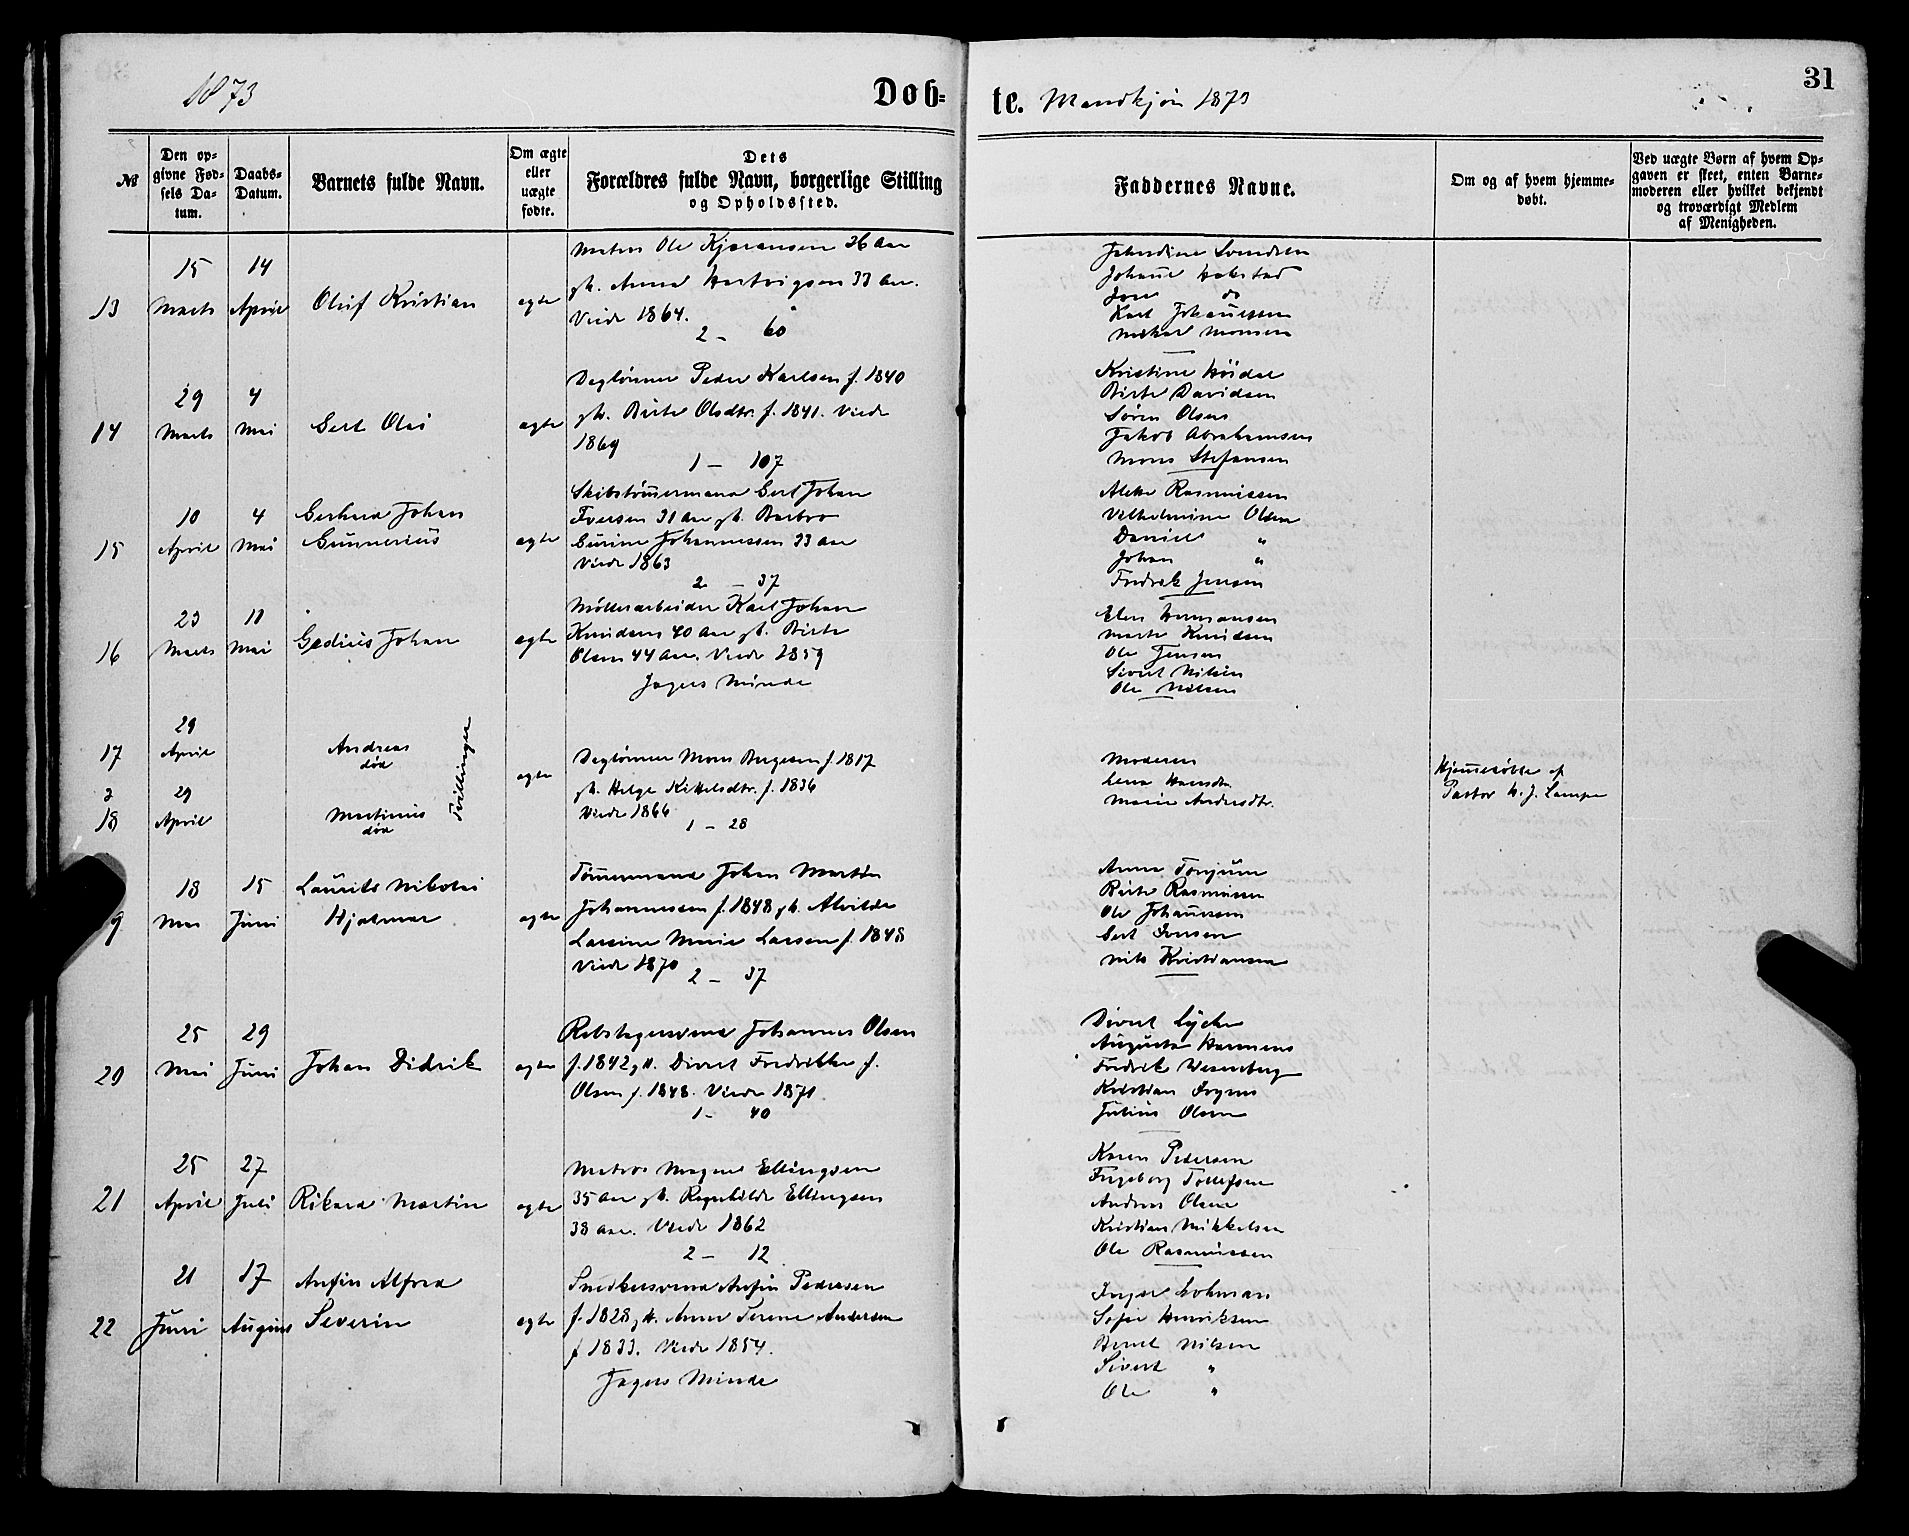 1873
Døb=
te. Mandkjøn 1873
31
№
Den op=
givne Fød=
sels Da=
tum.
Daabs=
Datum.
Barnets fulde Navn.
Om ægte
eller
uægte
fødte.
Dets
Forældres fulde Navn, borgerlige Stilling
og Opholdssted.
Faddernes Navne.
Om og af hvem hjemme=
døbt.
Ved uægte Børn af hvem Op=
gaven er skeet, enten Barne=
moderen eller hvilket bekjendt
og troværdigt Medlem
af Menigheden.
13
15
Marts
14
April
Oluf Kristian
ægte
Matros Ole 36 Aar
gh. Anna Hartvigsen 33 Aar.
Viede 1864.
2 – 60
Svendsen
Johan Hokstad
do
Karl Johannessen
Mikal Monsen
14
29
Marts
4
Mai
Gert Olai
ægte
Daglønner Peder Karlsen f. 1840
gh. Birte Olsdtr. f. 1841. Viede
1869
1 – 107
Kristine
Birte Davidsen
Søren Olsen
Jakob Abrahamsen
Mons Stefansen
15
10
April
4
Mai
Gerhard Johan
Gunnerius
ægte
Skibstømermand Gert Johan
Iversen 31 Aar gh. Barbro
Gurine Johannessen 33 Aar
Viede 1863
2 – 37
Rasmussen
Vilhelmine Olsen
Daniel "
Johan "
Fredrik Jensen
16
23
Marts
11
Mai
Gedius Johan
ægte
Møllearbeider Karl Johan
Knudsen 40 Aar gh. Birte
Olsen 44 Aar. Viede 1859
Jægers Minde
Elen Hermansen
Marte Knudsen
Ole Jensen
Sivert Nilsen
Ole Nilsen
17
29
April
Andreas
død
Tvillinger
ægte
Daglønner Mons Birgesen f. 1817
gh. Helge Kittelsdtr. f. 1836
Viede 1866
1 – 28
Moderen
Lena Hansdtr.
Marie Andersdtr.
Hjemmedøbte af
Pastor H. J. Lampe
18
29
April
Martinius
død
18
Mai
15
Juni
Laurits Nikolai
Hjalmar
ægte
Tømmermand Johan Martin
Johannessen f. 1848 gh. Alvilde
Larsine Marie Larsen f. 1848
Viede 1870
2 – 37
Anna Tonjum
Birte Rasmussen
Ole Johannessen
Gert Iversen
Nils Kristiansen
20
25
Mai
29
Juni
Johan Didrik
ægte
Rebslagersvend Johannes Olsen
f. 1842 gh. Divert Fredrikke f.
Olsen f. 1848. Viede 1871
1 – 40
Divert Lycke
Augusta Harmens
Fredrik Wesenberg
Kristian
Julius Olsen
21
25
April
27
Juli
Rikard Martin
ægte
Matros Magne Ellingsen
35 Aar gh. Ragnhilde Ellingsen
38 Aar. Viede 1862
2 – 12
Karen Pedersen
Ingeborg Tollefsen
Andreas Olsen
Kristian Mikkelsen
Ole Rasmussen
22
21
Juni
17
August
Anfin Alfred
Severin
ægte
Snedkersvend Anfin Pedersen
f. 1828 gh. Anne Serene Andersen
f 1833. Viede 1854.
Jægers Minde
Inger Lohman
Sofie Henriksen
Bernt Nilsen
Sivert "
Ole "